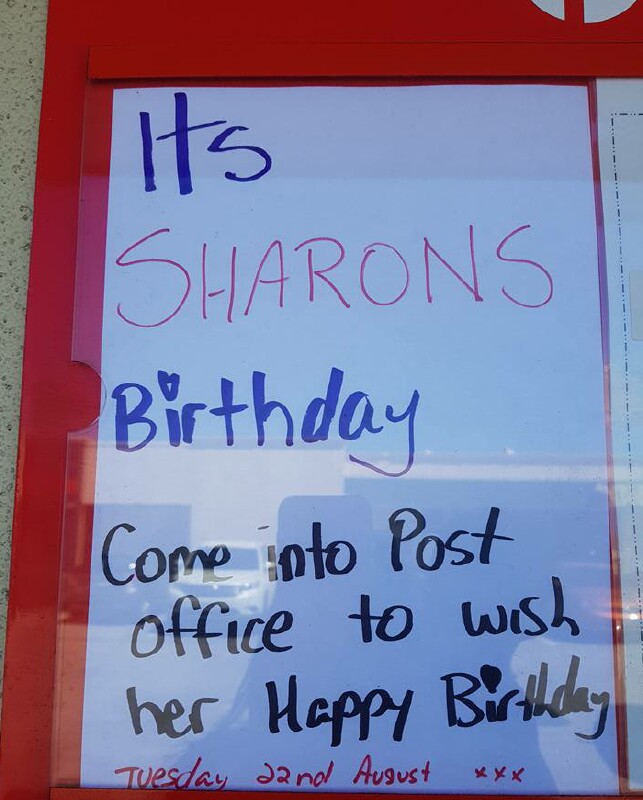 Its
SHARONS
Birthday
Come into Post
office to wish
her Happy Birthday
Tuesday 22nd August xxx